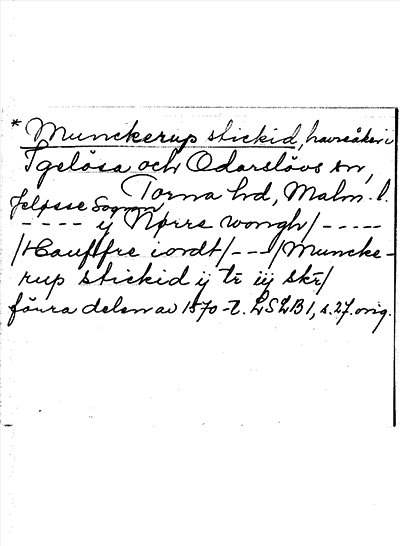 * Munckerup stickid, havreåker i
Igelösa och Odarslövs sn,
Torna hd, Malm. l.
Jelösse Sogenn
---- ij Nørre wongh/-----
/Hauffre iordt/---/Muncke-
rup stickid ij tr iij skr/
förra delen av 1570-t. LSLB1, s.27. orig.